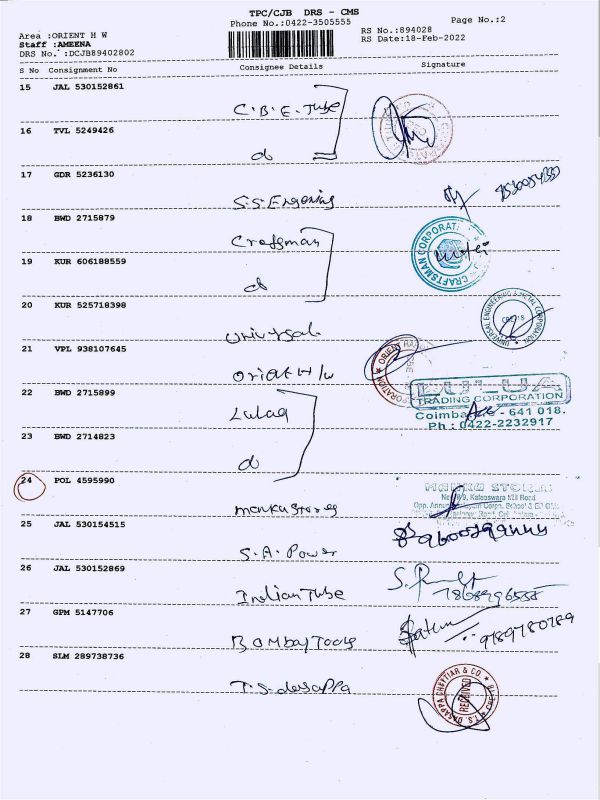 TPC/CJB DRS - CMS
Phone No.:0422-3505555
Page No.:2
Area :ORIENT H W
RS No.:894028
Staff :AMEENA
RS Date:18-Feb-2022
DRS No. :DCJB89402802
S No Consignment No Consignee Details Signature
15 JAL 530152861
C.B.E. Tube
16 TVL 5249426
do
17 GDR 5236130
S.S. Engening
18 BWD 2715879
Craftsman
CRAFTSMAN CORPORATION
19 KUR 606188559
do
20 KUR 525718398
Univusal
UNIVERSAL ENGINEERING & METAL CORPORATION
21 VPL 938107645
Oriat H/w
22 BWD 2715899
Lulua
LULUA
TRADING CORPORATION
Coimbatore - 641 018.
Ph : 0422-2232917
23 BWD 2714823
do
24 POL 4595990
manku stores
MANKU STORES
Kaleeswara Mill Road
25 JAL 530154515
S.A. Power
26 JAL 530152869
Indian Tube
27 GPM 5147706
Bombay Tools
9789780789
28 SLM 289738736
T.S. dasappa
T.S. DASAPPA CHETTIAR & CO.
RECEIVED